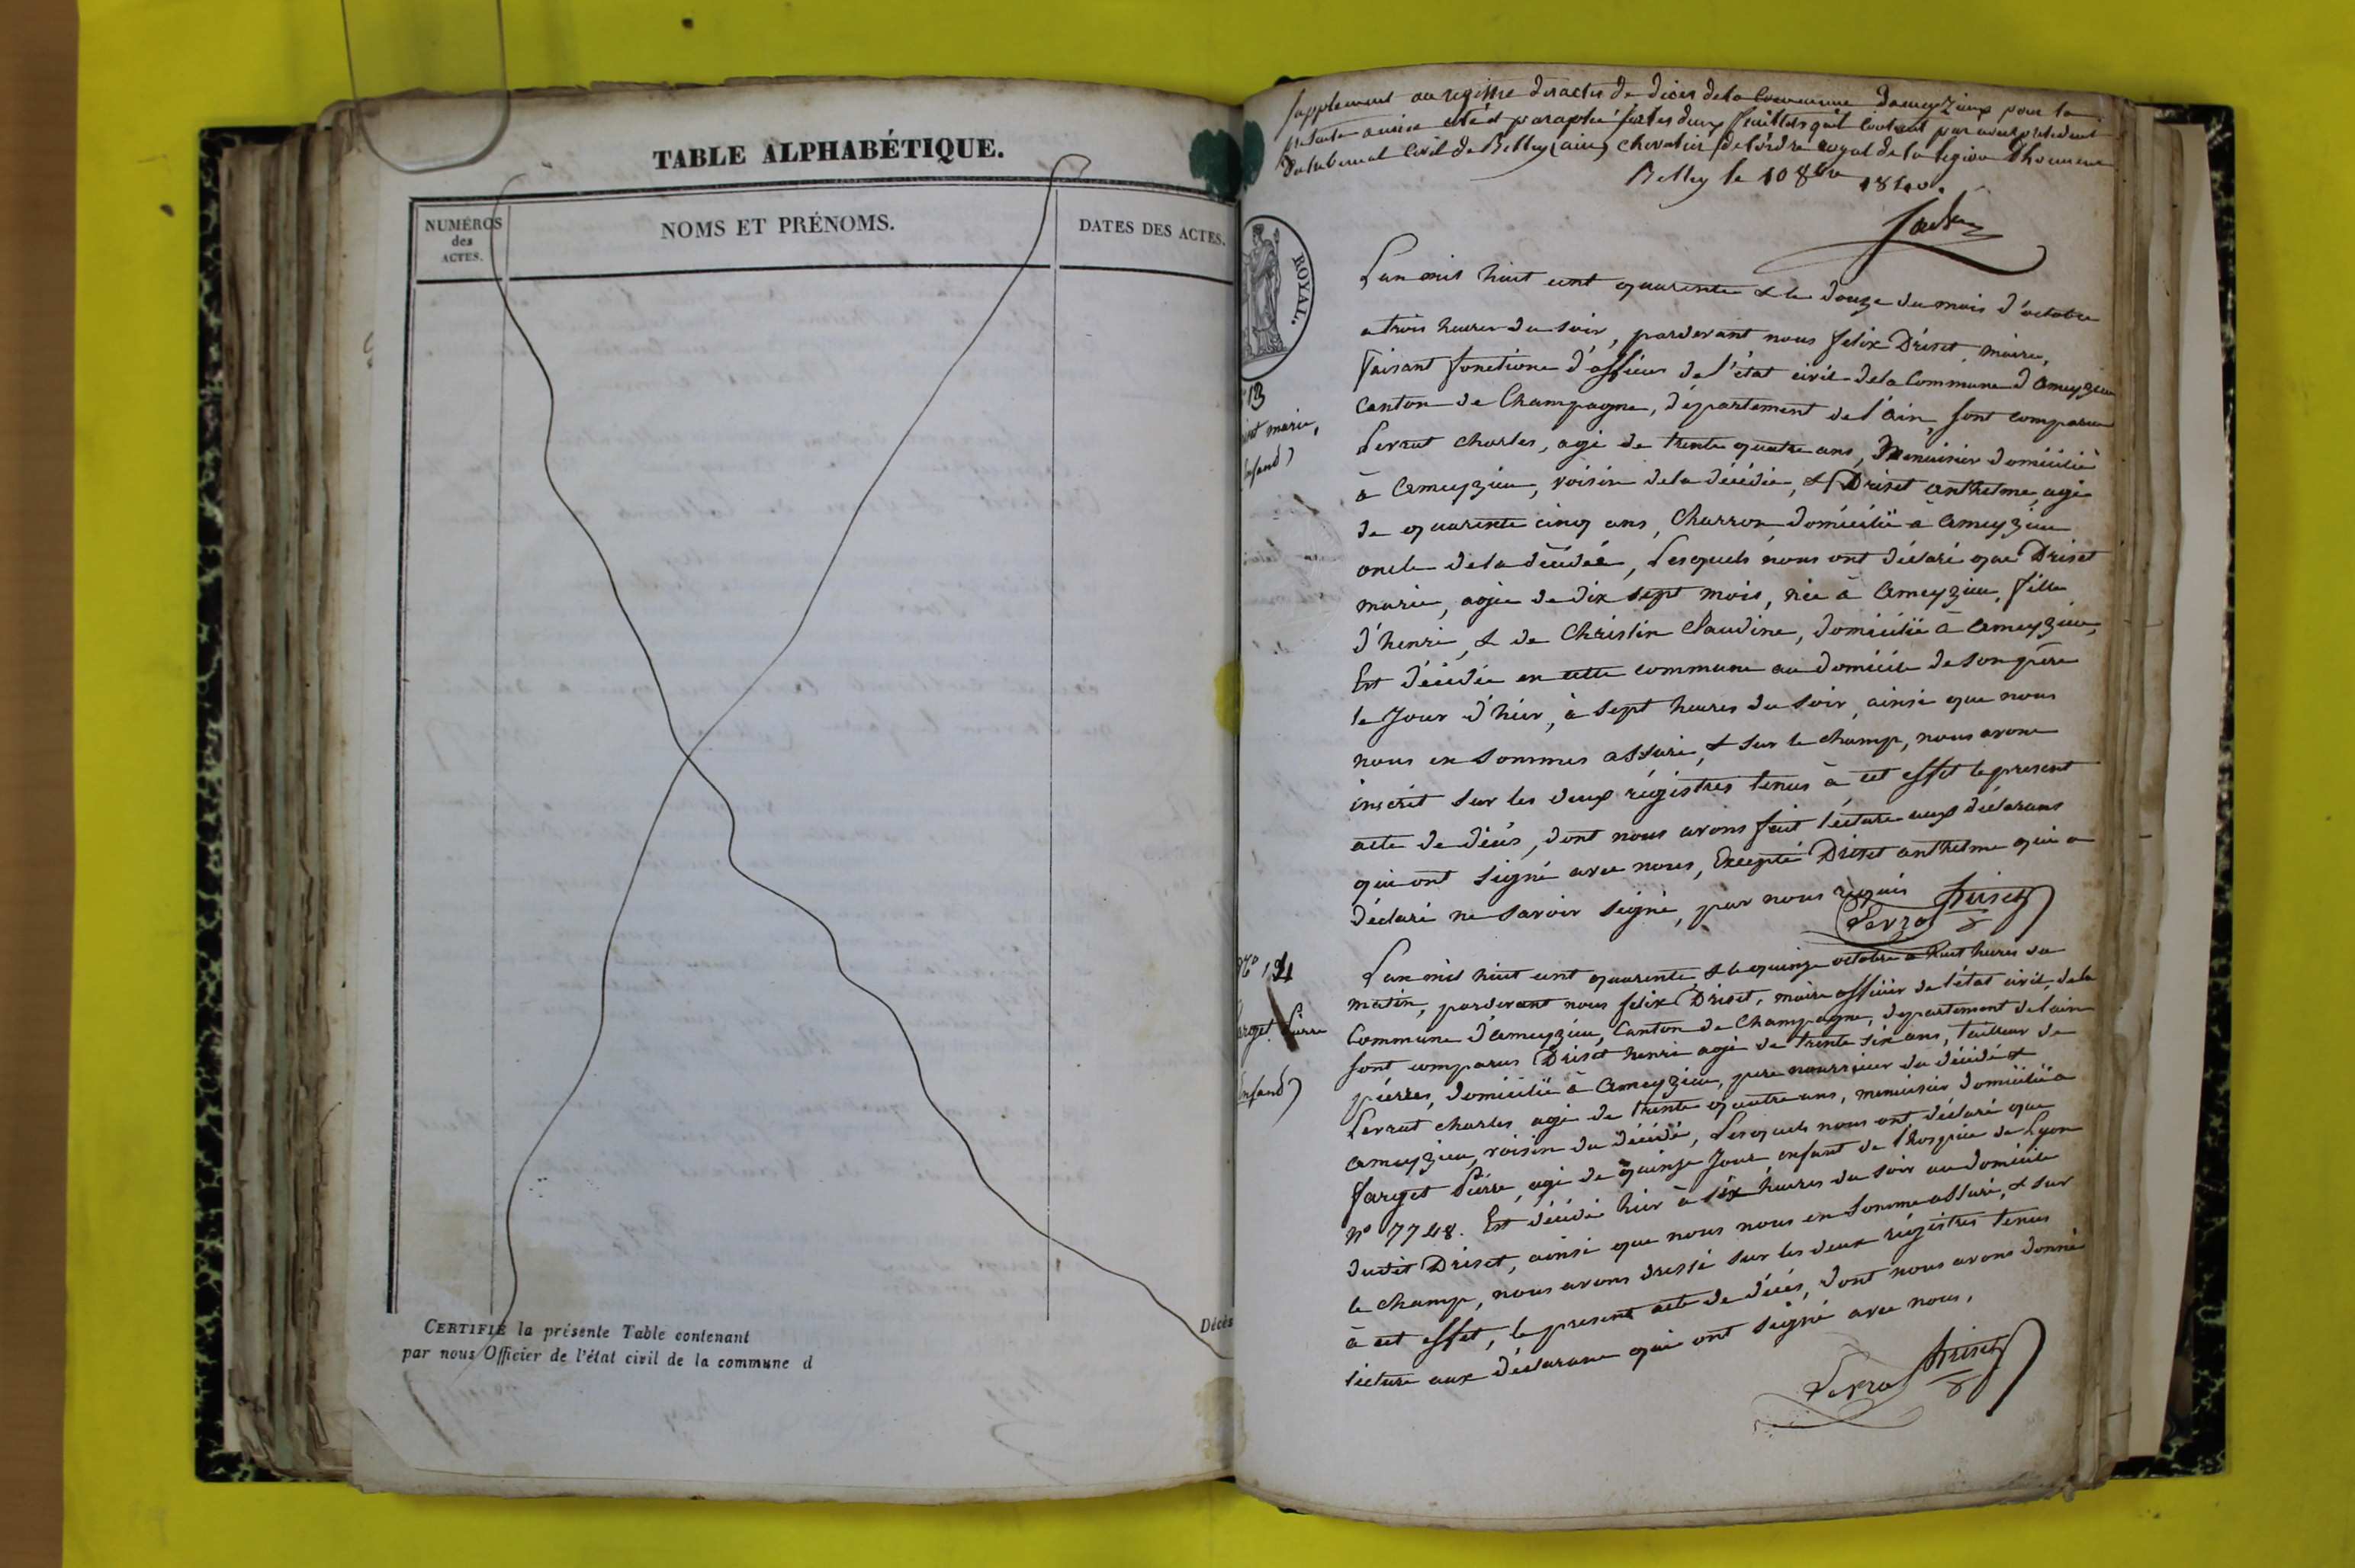 TABLE ALPHABÉTIQUE.
NUMÉROS
des
ACTES.
NOMS ET PRÉNOMS.
DATES DES ACTES.
CERTIFIÉ la présente Table contenant
par nous Officier de l'état civil de la commune d
Décès
Supplement au registre des actes de déces de la Commune Dameyzieux pour la
présente année coté et paraphé sur les deux feuillets qu'il contient par nous président
du tribunal Civil de Belley (ain) chevalier de l'ordre royal de la légion D'honneur
Belley le 10 8bre 1840.
ROYAL.
13
marie,
enfand)
L'an mil huit cent quarente & le douze du mois d'octobre
a trois heures du soir, pardevant nous felix Driset, maire,
faisant fonctione d'officier de l'état civil de la Commune d'ameyzieu
canton de Champagne, département de l'ain, sont comparu
Perrat charles, agé de trente quatre ans, Menuisier domicilié
à ameyzieu, voisin de la décédée, & Driset anthelme, agé
de quarente cinq ans, Charron, domicilié à ameyzieu
oncle de la décédée, Lesquels nous ont déclaré que Driset
marie, agée de dix sept mois, née à ameyzieu, fille
d'henri, & de Christin Claudine, domicilié à ameyzieu,
Est décédée en cette commune au domicile de son père
le Jour d'hier, à sept heures du soir, ainsi que nous
nous en sommes assuré, & sur le champ, nous avons
inscrit sur les deux régistres tenus à cet effet le present
acte de décès, dont nous avons fait lecture aux déclarans
qui ont signé avec nous, Excepté Driset anthelme qui a
déclaré ne savoir signé, par nous requis
Perra Driset
No 14
farget Pierre
enfand)
L'an mil huit cent quarente, & le quinze octobre a huit heures du
matin, pardevant nous felix Driset, maire officier de l'état civil, de la
Commune d'ameyzieu, Canton de Champagne, departement de l'ain
sont comparus Driset henri agé de trente six ans, tailleur de
pierres, domicilié à ameyzieu, pere nourricier du décédé &
Perrat charles agé de trente quatre ans, menuisier domicilié a
ameyzieu, voisin du décédé, Lesquels nous ont déclaré que
farget Pierre, agé de quinze Jour enfant de l'hospice de Lyon
No 7748. Est décédé hier à six heures du soir au domicile
dudit Driset, ainsi que nous nous en somme assuré, & sur
le champ, nous avons dressé sur les deux régistres tenus
à cet effet, le present acte de décés, dont nous avons donné
lecture aux déclarans qui ont signé avec nous,
Perra Driset